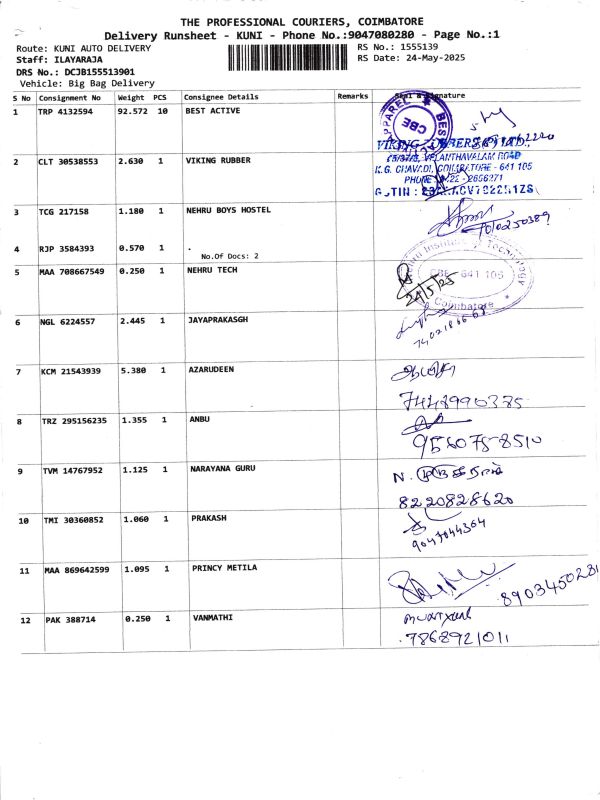 THE PROFESSIONAL COURIERS, COIMBATORE
Delivery Runsheet - KUNI - Phone No.:9047080280 - Page No.:1
Route: KUNI AUTO DELIVERY
RS No.: 1555139
Staff: ILAYARAJA
RS Date: 24-May-2025
DRS No.: DCJB155513901
Vehicle: Big Bag Delivery
S No Consignment No Weight PCS Consignee Details Remarks Seal & Signature
1 TRP 4132594 92.572 10 BEST ACTIVE
APPAREL BEST CBE
2 CLT 30538553 2.630 1 VIKING RUBBER
VELANTHAVALAM ROAD
K.G. CHAVADI, COIMBATORE - 641 105
3 TCG 217158 1.180 1 NEHRU BOYS HOSTEL
4 RJP 3584393 0.570 1 .
No.Of Docs: 2
5 MAA 708667549 0.250 1 NEHRU TECH
Nehru Institute of Technology
CBE - 641 105
Coimbatore
24/5/25
6 NGL 6224557 2.445 1 JAYAPRAKASGH
7 KCM 21543939 5.380 1 AZARUDEEN
8 TRZ 295156235 1.355 1 ANBU
956075-8510
9 TVM 14767952 1.125 1 NARAYANA GURU
8220828620
10 TMI 30360852 1.060 1 PRAKASH
9047044364
11 MAA 869642599 1.095 1 PRINCY METILA
12 PAK 388714 0.250 1 VANMATHI
7868921011